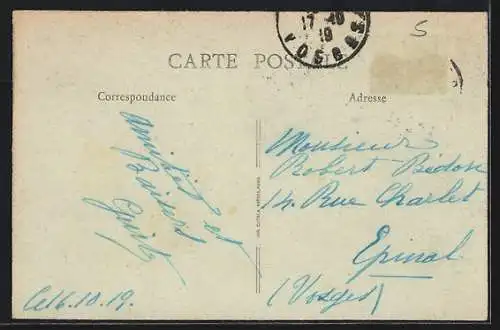 17 -10
19
VOSGES
5
CARTE POSTALE
Correspondance
Adresse
Amitiés et
Baisers
Monsieur
Robert Bédon
14. Rue Charlet
Epinal
(Vosges)
16.10.19.